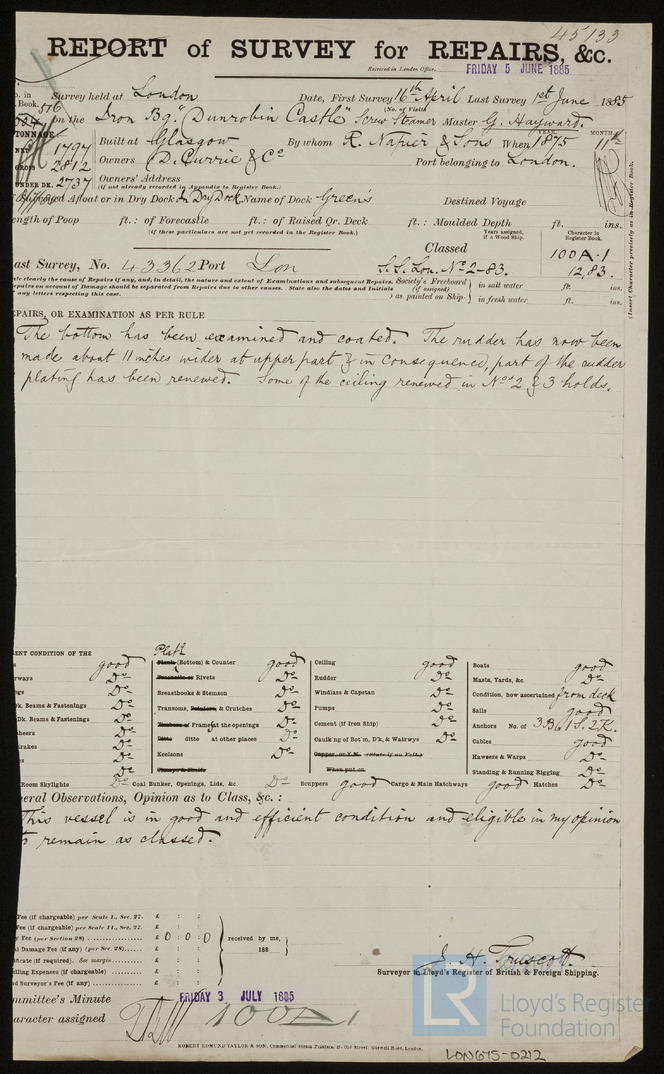 45133
REPORT of SURVEY for REPAIRS, &c.
Received in London Office, FRIDAY 5 JUNE 1885
o. in Book. 576 Survey held at London Date, First Survey 16th April Last Survey 1st June 1885
(No. of Visits
on the Iron Bq. "Dunrobin Castle" Screw Steamer Master G. Hayward.
TONNAGE
NET 1797 Built at Glasgow By whom R. Napier & Sons When YEAR. 1875 MONTH 11th
GROSS 2812 Owners D. Currie & Co Port belonging to London.
UNDER DK. 2737 Owners' Address
(if not already recorded in Appendix to Register Book.)
Surveyed Afloat or in Dry Dock in Dry Dock Name of Dock Green's Destined Voyage
ength of Poop ft.: of Forecastle ft.: of Raised Qr. Deck ft.: Moulded Depth ft. ins.
(if these particulars are not yet recorded in the Register Book.)
Years assigned, if a Wood Ship. Character in Register Book.
Classed 100A.1
ast Survey, No. 43362 Port Lon S.S. Lon. No 2-83. 12,83.
ate clearly the cause of Repairs if any, and, in detail, the nature and extent of Examinations and subsequent Repairs.
epairs on account of Damage should be separated from Repairs due to other causes. State also the dates and Initials
any letters respecting this case.
Society's Freeboard (if assigned) as painted on Ship- in salt water ft. ins.
in fresh water. ft. ins.
(Insert Character precisely as in Register Book.
EPAIRS, OR EXAMINATION AS PER RULE
The bottom has been examined and coated. The rudder has now been
made about 11 inches wider at upper part & in consequence, part of the rudder
plating has been renewed. Some of the ceiling renewed in Nos 2 & 3 holds.
ENT CONDITION OF THE
good
rways Do
ngs Do
Dk. Beams & Fastenings Do
Dk. Beams & Fastenings Do
heers Do
trakes Do
es Do
Do
Room Skylights Do
Plate
Plank (Bottom) & Counter good
Treenails or Rivets Do
Breasthooks & Stemson Do
Transoms, Pointers, & Crutches Do
Timbers or Frames at the openings Do
Ditto ditto at other places Do
Keelsons Do
Coal Bunker, Openings, Lids, &c. Do
Ceiling good
Rudder Do
Windlass & Capstan Do
Pumps Do
Cement (if Iron Ship) Do
Caulk'ng of Bot'm, D'k, & Watrwys Do
Copper, or Y.M. (State if on Felt.)
When put on
Scuppers good Cargo & Main Hatchways good Hatches Do
Boats good
Masts, Yards, &c. Do
Condition, how ascertained from deck
Sails good
Anchors No. of 3.B. 1S. 2K.
Cables good
Hawsers & Warps Do
Standing & Running Rigging Do
neral Observations, Opinion as to Class, &c. :
This vessel is in good and efficient condition and eligible in my opinion
to remain as classed.
Fee (if chargeable) per Scale I., Sec. 27. £ : :
Fee (if chargeable) per Scale II., Sec. 27. £ : :
y Fee (per Section 28) £ 0 : 0 : 0
al Damage Fee (if any) (per Sec. 28) £ : :
ificate (if required). See margin. £ : :
elling Expenses (if chargeable) £ : :
nd Surveyor's Fee (if any) £ : :
received by me,
188
J. H. Truscott
Surveyor to Lloyd's Register of British & Foreign Shipping.
mmittee's Minute FRIDAY 3 JULY 1885
aracter assigned 100A1
ROBERT EDMUND TAYLOR & SON, Commercial Steam Printers, 19, Old Street, Goswell Road, London.
LR Lloyd's Register
Foundation
LON675-0212